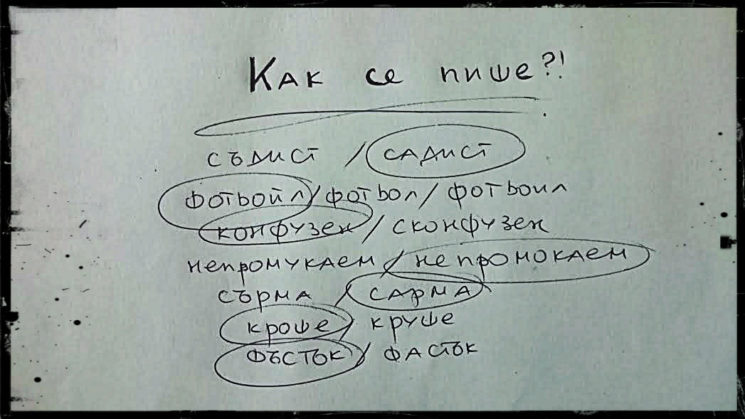 Как се пише?!
съдист / садист
фотьойл / фотьол / фотьоил
конфузен / сконфузен
непромукаем / непромокаем
сърма / сарма
кроше / круше
фъстък / фастък